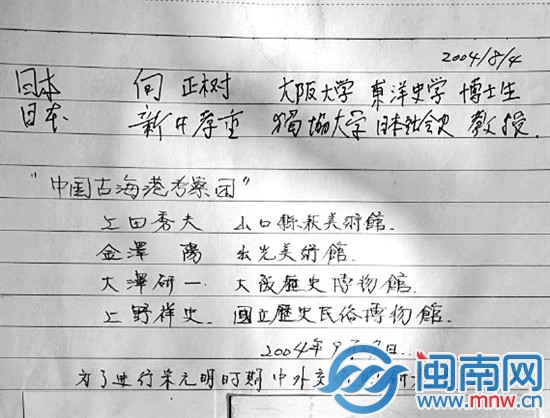 2004/8/4
日本 何 正树 大阪大学 東洋史学 博士生
日本 新井孝重 獨協大学 日本社会史 教授.
"中国古海港考察团"
上田秀夫 山口縣萩美術館.
金澤 陽 出光美術館.
大澤研一. 大阪歴史博物館.
上野祥史. 國立歴史民俗博物館.
2004年9月
为了进行宋元明时期中外交
闽南网
www.mnw.cn